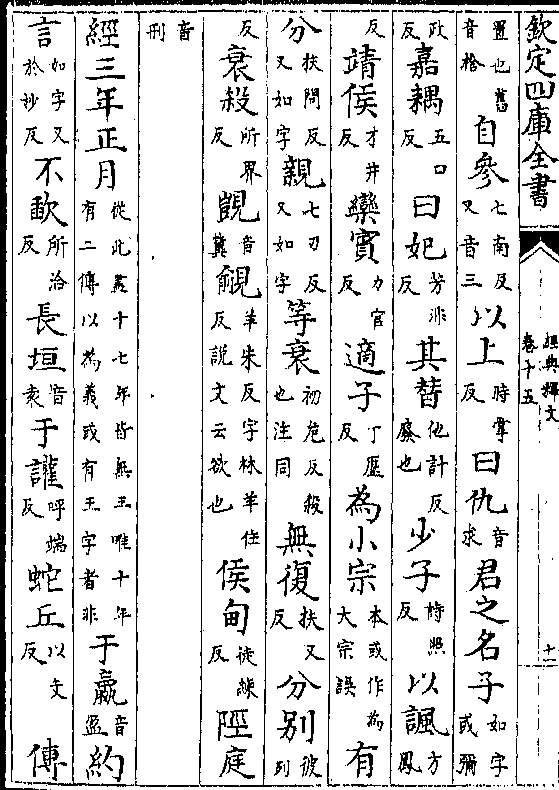 欽定四庫全書
經典釋文
卷十五
十一
置也舊音捨自參七南反又音三以上時掌反曰仇音求君之名子如字或彌
政反嘉耦五口反曰妃芳非反其替他計反廢也少子詩照反以諷方鳳
反靖侯才井反欒賓力官反適子丁歷反為小宗本或作為大宗誤有
分扶問反又如字親七刃反又如字等衰初危反殺也注同無復扶又反分别彼列
反衰殺所界反覬音冀覦羊朱反字林羊住反說文云欲也侯甸徒練反陘庭
音刑
經三年正月從此盡十七年皆無王唯十年有二傳以為義或有王字者非于嬴音盈約
言如字又於妙反不歃所洽反長垣音袁于讙呼端反蛇丘以支反傳